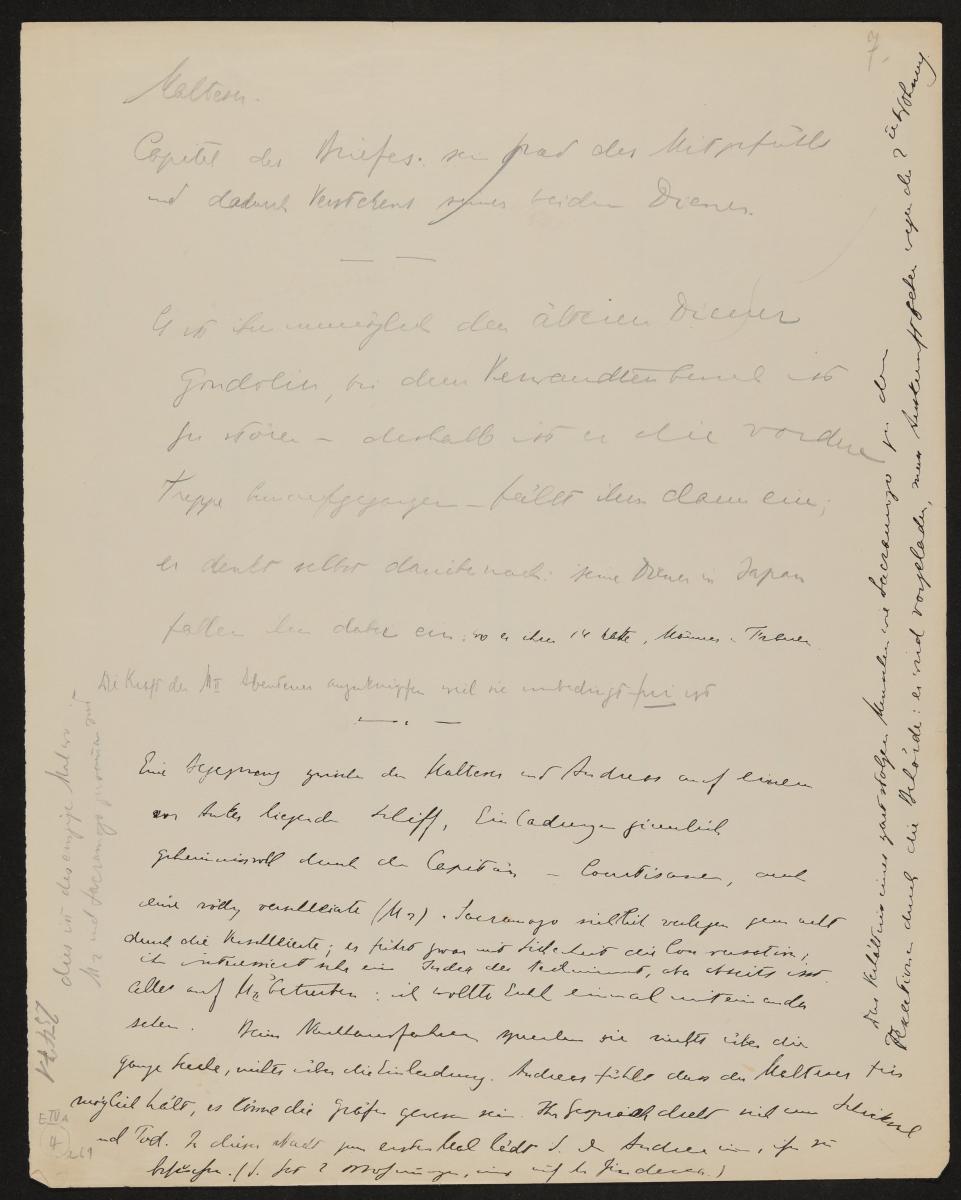 7.
Malteser.
Capitel des Briefes. sein Grad des Mitgefühls
und dadurch Verstehens seines beiden Diener.
Es ist ihm unmöglich den älteren Diener
Gondolin, der dem Verwandtenbesuch ist
zu stören – deshalb ist er die vordere
Treppe hinaufgegangen – fällt ihm dann ein;
er denkt selbst darüber nach: seine Diener in Japan
fallen ihm dabei ein: wo er ihrer 14 hatte, Männer u Frauen.
Die Kraft der M II Abenteuer anzuknüpfen weil sie unbedingt frei ist
Eine Begegnung zwischen dem Malteser und Andreas auf einem
vor Anker liegenden Schiff, Einladungen ziemlich
geheimnisvoll durch den Capitän – Courtisanen, auch
eine völlig verschleierte (M 2). Sacramozo sichtlich verlegen gemacht
durch die Verschleierte; er führt zwar mit Sicherheit die Conversation;
ihn interessiert sehr ein Inder der teilnimmt, aber abseits isst.
Alles auf M II betreiben: ich wollte Euch einmal miteinander
sehen. Beim Nachhausefahren sprechen sie nichts über die
ganze Sache, nichts über die Einladung. Andreas fühlt dass der Malteser für
möglich hält, es könne die Gräfin gewesen sein. Ihr Gespräch dreht sich um Schicksal
und Tod. In dieser Nacht zum ersten Mal lädt S. den Andreas ein, ihn zu
besuchen. (S. hat 2 Wohnungen, eine auf der Giudecca.)
dies ist das einzige Mal wo
M2 und Sacramozo zusammen sind
E IV A
4
269
Das Verhältnis eines ganz stolzen Menschen wie Sacramozo zu den
Vexationen durch die Behörde: er wird vorgeladen, muss Auskunft geben wegen der 2ten Wohnung